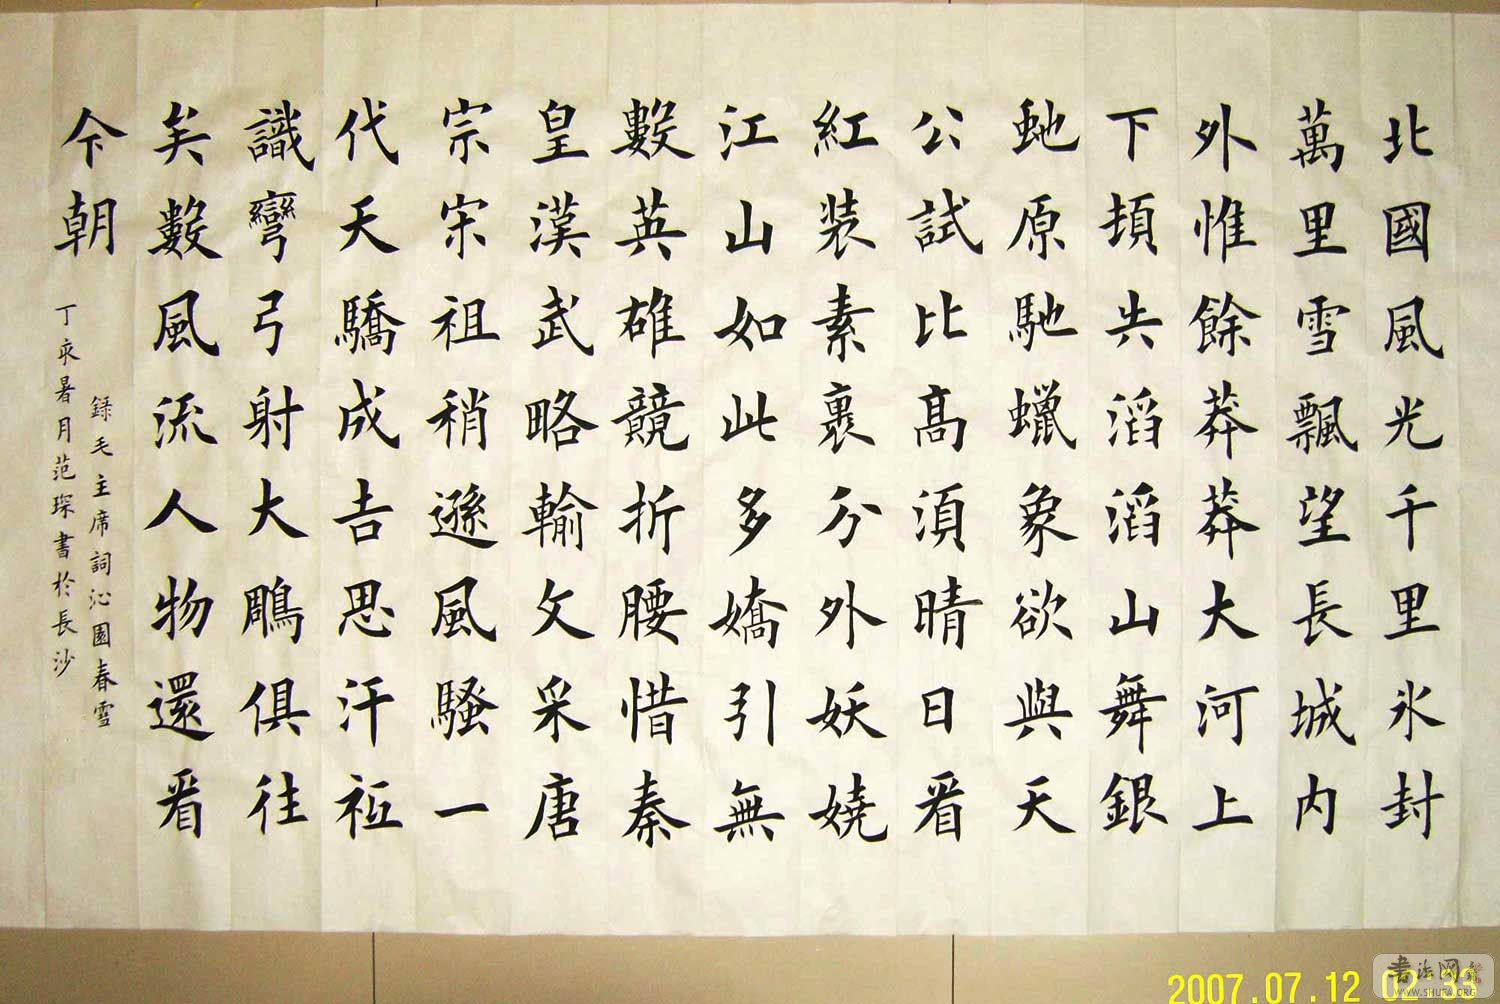 北國風光千里氷封
萬里雪飄望長城内
外惟餘莽莽大河上
下頓失滔滔山舞銀
虵原馳蠟象欲與天
公試比髙湏晴日看
紅装素裹分外妖嬈
江山如此多嬌引無
數英雄競折腰惜秦
皇漢武略輸文采唐
宗宋祖稍遜風騷一
代天驕成吉思汗祗
識彎弓射大鵰俱往
矣數風流人物還看
今朝
錄毛主席詞沁園春雪
丁亥暑月范琛書於長沙
2007.07.12 02:33
书法网
WWW.SHUFA.ORG